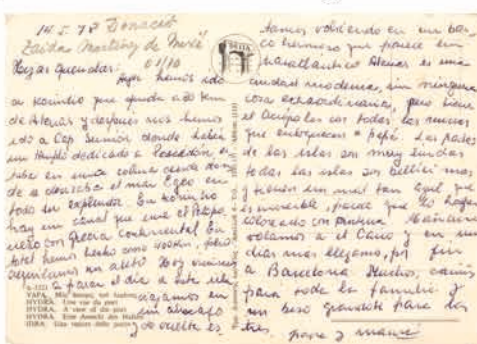 14.I.78 Donació
Zaida Martínez de Moxé
01/10
Hijas queridas:
Ayer hemos ido
a Korintio que queda a 80 km
de Atenas y después nos hemos
ido a Cap Sunión donde había
un templo dedicado a Poseidón es-
taba en una colina desde don-
de se divisaba el mar Egeo en
todo su esplendor. En Korintio
hay un canal que une el Pelopo-
neso con Grecia continental. En
total hemos hecho como 400 km, pero
alquilamos un auto. Hoy vinimos
a pasar el día a esta isla
viajamos en
un barcazo
y de vuelta es-
ΥΔΡΑ.
HYDRA. Une vue du port
HYDRA. A view of the port
HYDRA. Eine Ansicht des Hafens
IDRA. Una veduta della porto
tamos volviendo en un bar-
co hermoso que parece un
transatlántico. Atenas es una
ciudad moderna, sin ninguna
cosa extraordinaria, pero tiene
el Acrópolis con todas las ruinas
que enloquecen a papá. Los paisajes
de las islas son muy lindas
todas las islas son bellísimas
y tienen un mar tan azul que
es increíble, parece que lo hayan
coloreado con pintura. Mañana
volamos a el Cairo y en unos
días mas llegamos, por fin
a Barcelona. Muchos cariños
para toda la familia y
un beso grandote para las
tres. papá y mamá